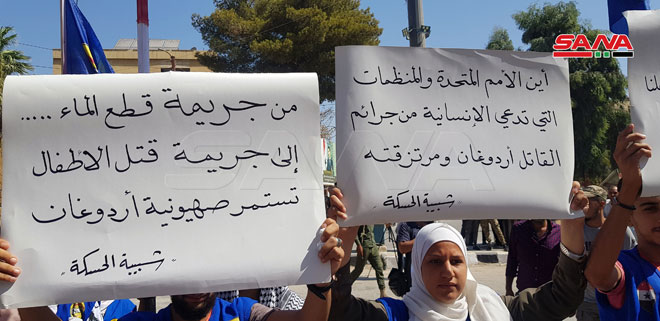 من جريمة قطع الماء .....
إلى جريمة قتل الاطفال
تستمر صهيونية أردوغان
شبيبة الحسكة
أين الأمم المتحدة والمنظمات
التي تدعي الإنسانية من جرائم
القاتل أردوغان ومرتزقته
شبيبة الحسكة
SANA
SANA